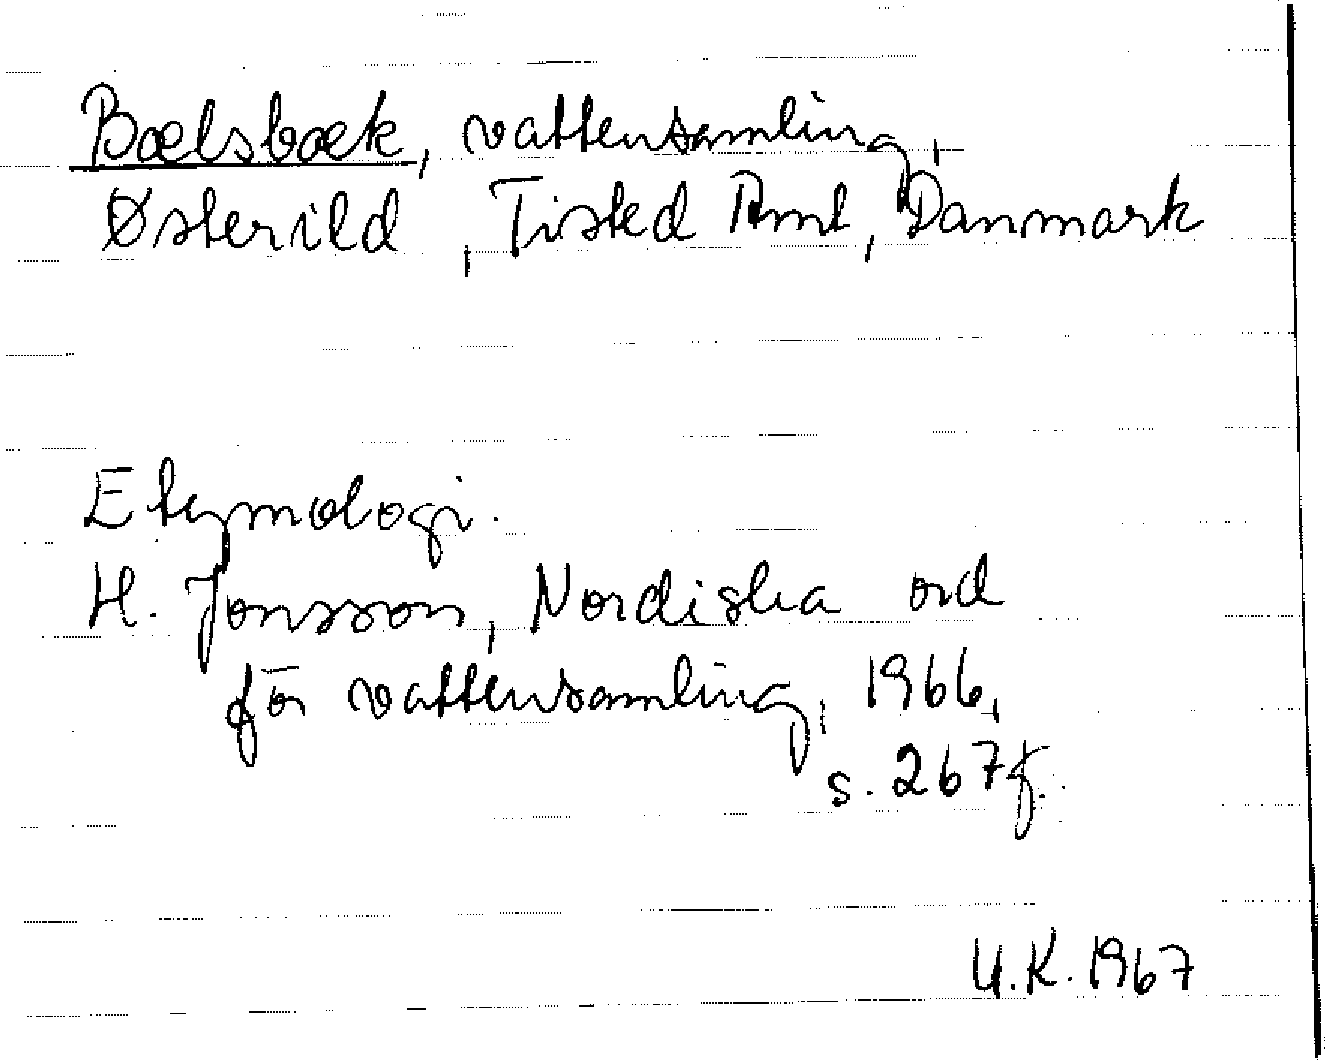 Bælsbæk, vattensamling,
Østerild, Tisted Amt, Danmark
Etymologi.
H. Jonsson, Nordiska ord
för vattensamling, 1966,
s. 267f.
U.K. 1967